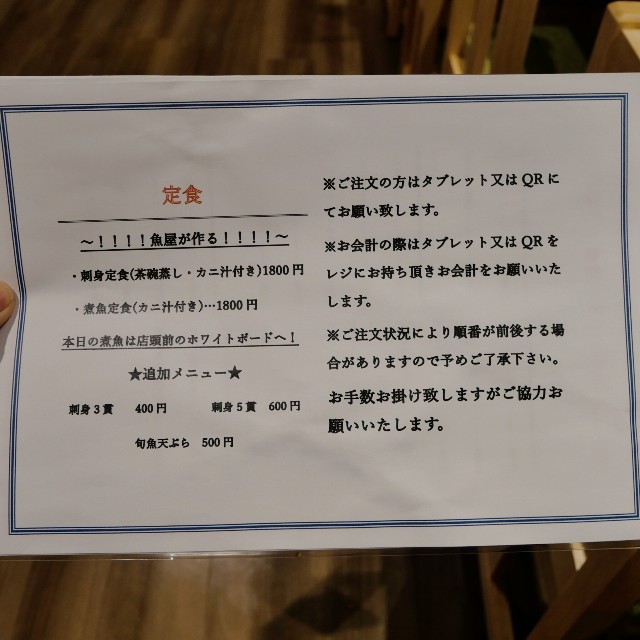 定食
～！！！！魚屋が作る！！！！～
・刺身定食(茶碗蒸し・カニ汁付き)1800円
・煮魚定食(カニ汁付き)…1800円
本日の煮魚は店頭前のホワイトボードへ！
★追加メニュー★
刺身3貫 400円 刺身5貫 600円
旬魚天ぷら 500円
※ご注文の方はタブレット又はQRに
てお願い致します。
※お会計の際はタブレット又はQRを
レジにお持ち頂きお会計をお願いいた
します。
※ご注文状況により順番が前後する場
合がありますので予めご了承下さい。
お手数お掛け致しますがご協力お
願いいたします。